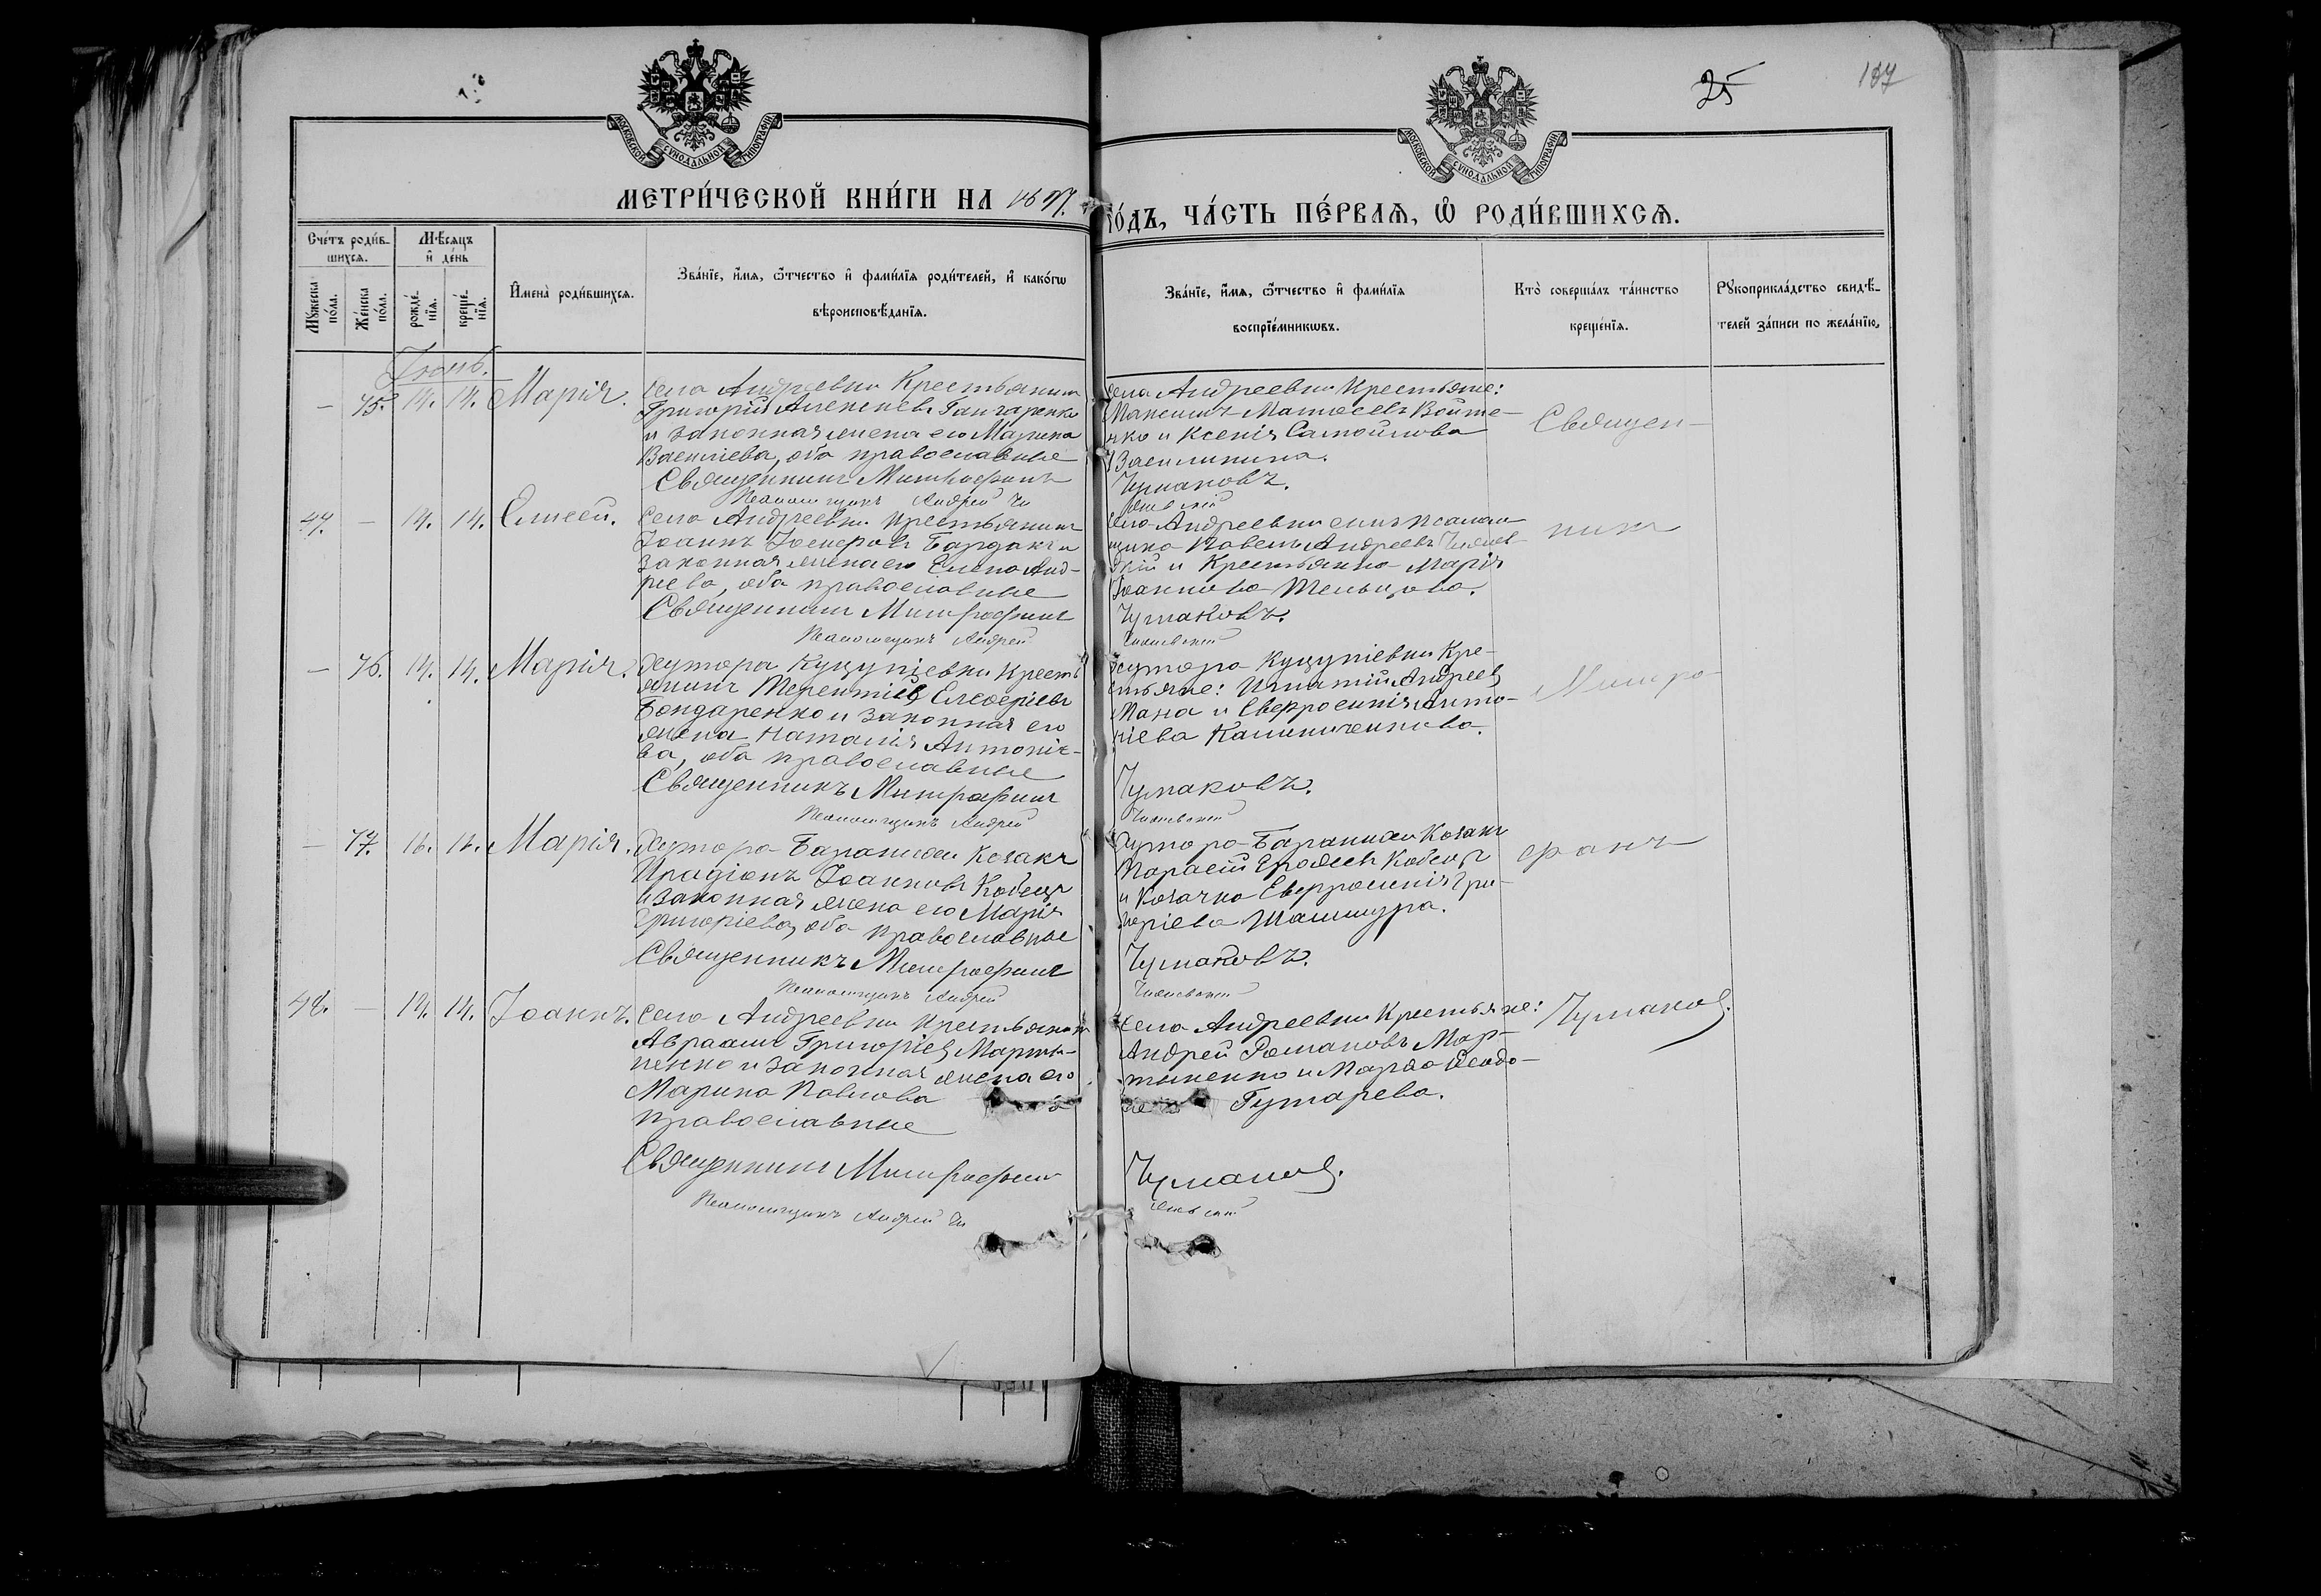 25
107
МОСКОВСКОЙ СѴНОДАЛЬНОЙ ТИПОГРАФІИ
МОСКОВСКОЙ СѴНОДАЛЬНОЙ ТИПОГРАФІИ
МЕТРИ́ЧЕСКОЙ КНИ́ГИ НА
ГО́ДЪ, ЧА́СТЬ ПЕ́РВАѦ, Ѡ҆ РОДИ́ВШИХСѦ.
Сче́тъ роди́в-
шихсѧ.
Мѣ́сѧцъ
и҆ де́нь
Мꙋ́жеска
по́ла.
Же́нска
по́ла.
рожде́-
нїѧ.
креще́-
нїѧ.
И҆мена̀ роди́вшихсѧ.
Зва́нїе, и҆́мѧ, ѻ҆́тчество и҆ фами́лїѧ роди́телей, и҆ како́гѡ
вѣроисповѣ́данїѧ.
Зва́нїе, и҆́мѧ, ѻ҆́тчество и҆ фами́лїѧ
воспрїе́мникѡвъ.
Кто̀ соверша́лъ та́инство
креще́нїѧ.
Рꙋкоприкла́дство свидѣ́-
телей за́писи по жела́нїю.
Іюнь.
— 75. 14. 14. Марія.
Села Андреевки Крестьянинъ
Григорій Алексѣевъ Гончаренко
и законная жена его Марина
Василіева, оба православные
Священникъ Митрофанъ
Псаломщикъ Андрей
Села Андреевки Крестьяне:
Максимъ Матѳеевъ Войте-
нко и Ксенія Самойлова
Василинина.
Чумаковъ.
Священ-
47. — 14. 14. Елисей.
Села Андреевки Крестьянинъ
Іоаннъ Іосифовъ Бардакъ и
законная жена его Елена Анд-
реева, оба православные
Священникъ Митрофанъ
Псаломщикъ Андрей
Села Андреевки сынъ псалом-
щика Павелъ Андреевъ
и Крестьянка Марія
Іоаннова
Чумаковъ.
никъ
— 76. 14. 14. Марія.
Хутора Куцупіевки Кресть-
янинъ Терентій Елеѳеріевъ
Бондаренко и законная его
жена Наталія Антоніе-
ва, оба православные
Священникъ Митрофанъ
Псаломщикъ Андрей
Хутора Куцупіевки Кре-
стьяне: Игнатій Андреевъ
Мана и Евфросинія Анто-
ніева Калиниченкова.
Чумаковъ.
Митро-
— 77. 16. 16. Марія.
Хутора Козакъ
Иродіонъ Іоанновъ Кобецъ
и законная жена его Марія
Григоріева, оба православные
Священникъ Митрофанъ
Псаломщикъ Андрей
Хутора Козакъ
Кобецъ
и Козачка Евфросинія Гри-
горіева
Чумаковъ.
фанъ
48. — 14. 14. Іоаннъ.
Села Андреевки Крестьянинъ
Авраамъ Григоріевъ Марты-
ненко и законная жена его
Марина Павлова
православные
Священникъ Митрофанъ
Псаломщикъ Андрей
Села Андреевки Крестьяне:
Андрей Романовъ Мар-
тыненко и Марѳа Ѳеодо-
Гутарева.
Чумаковъ.
Чумаковъ.